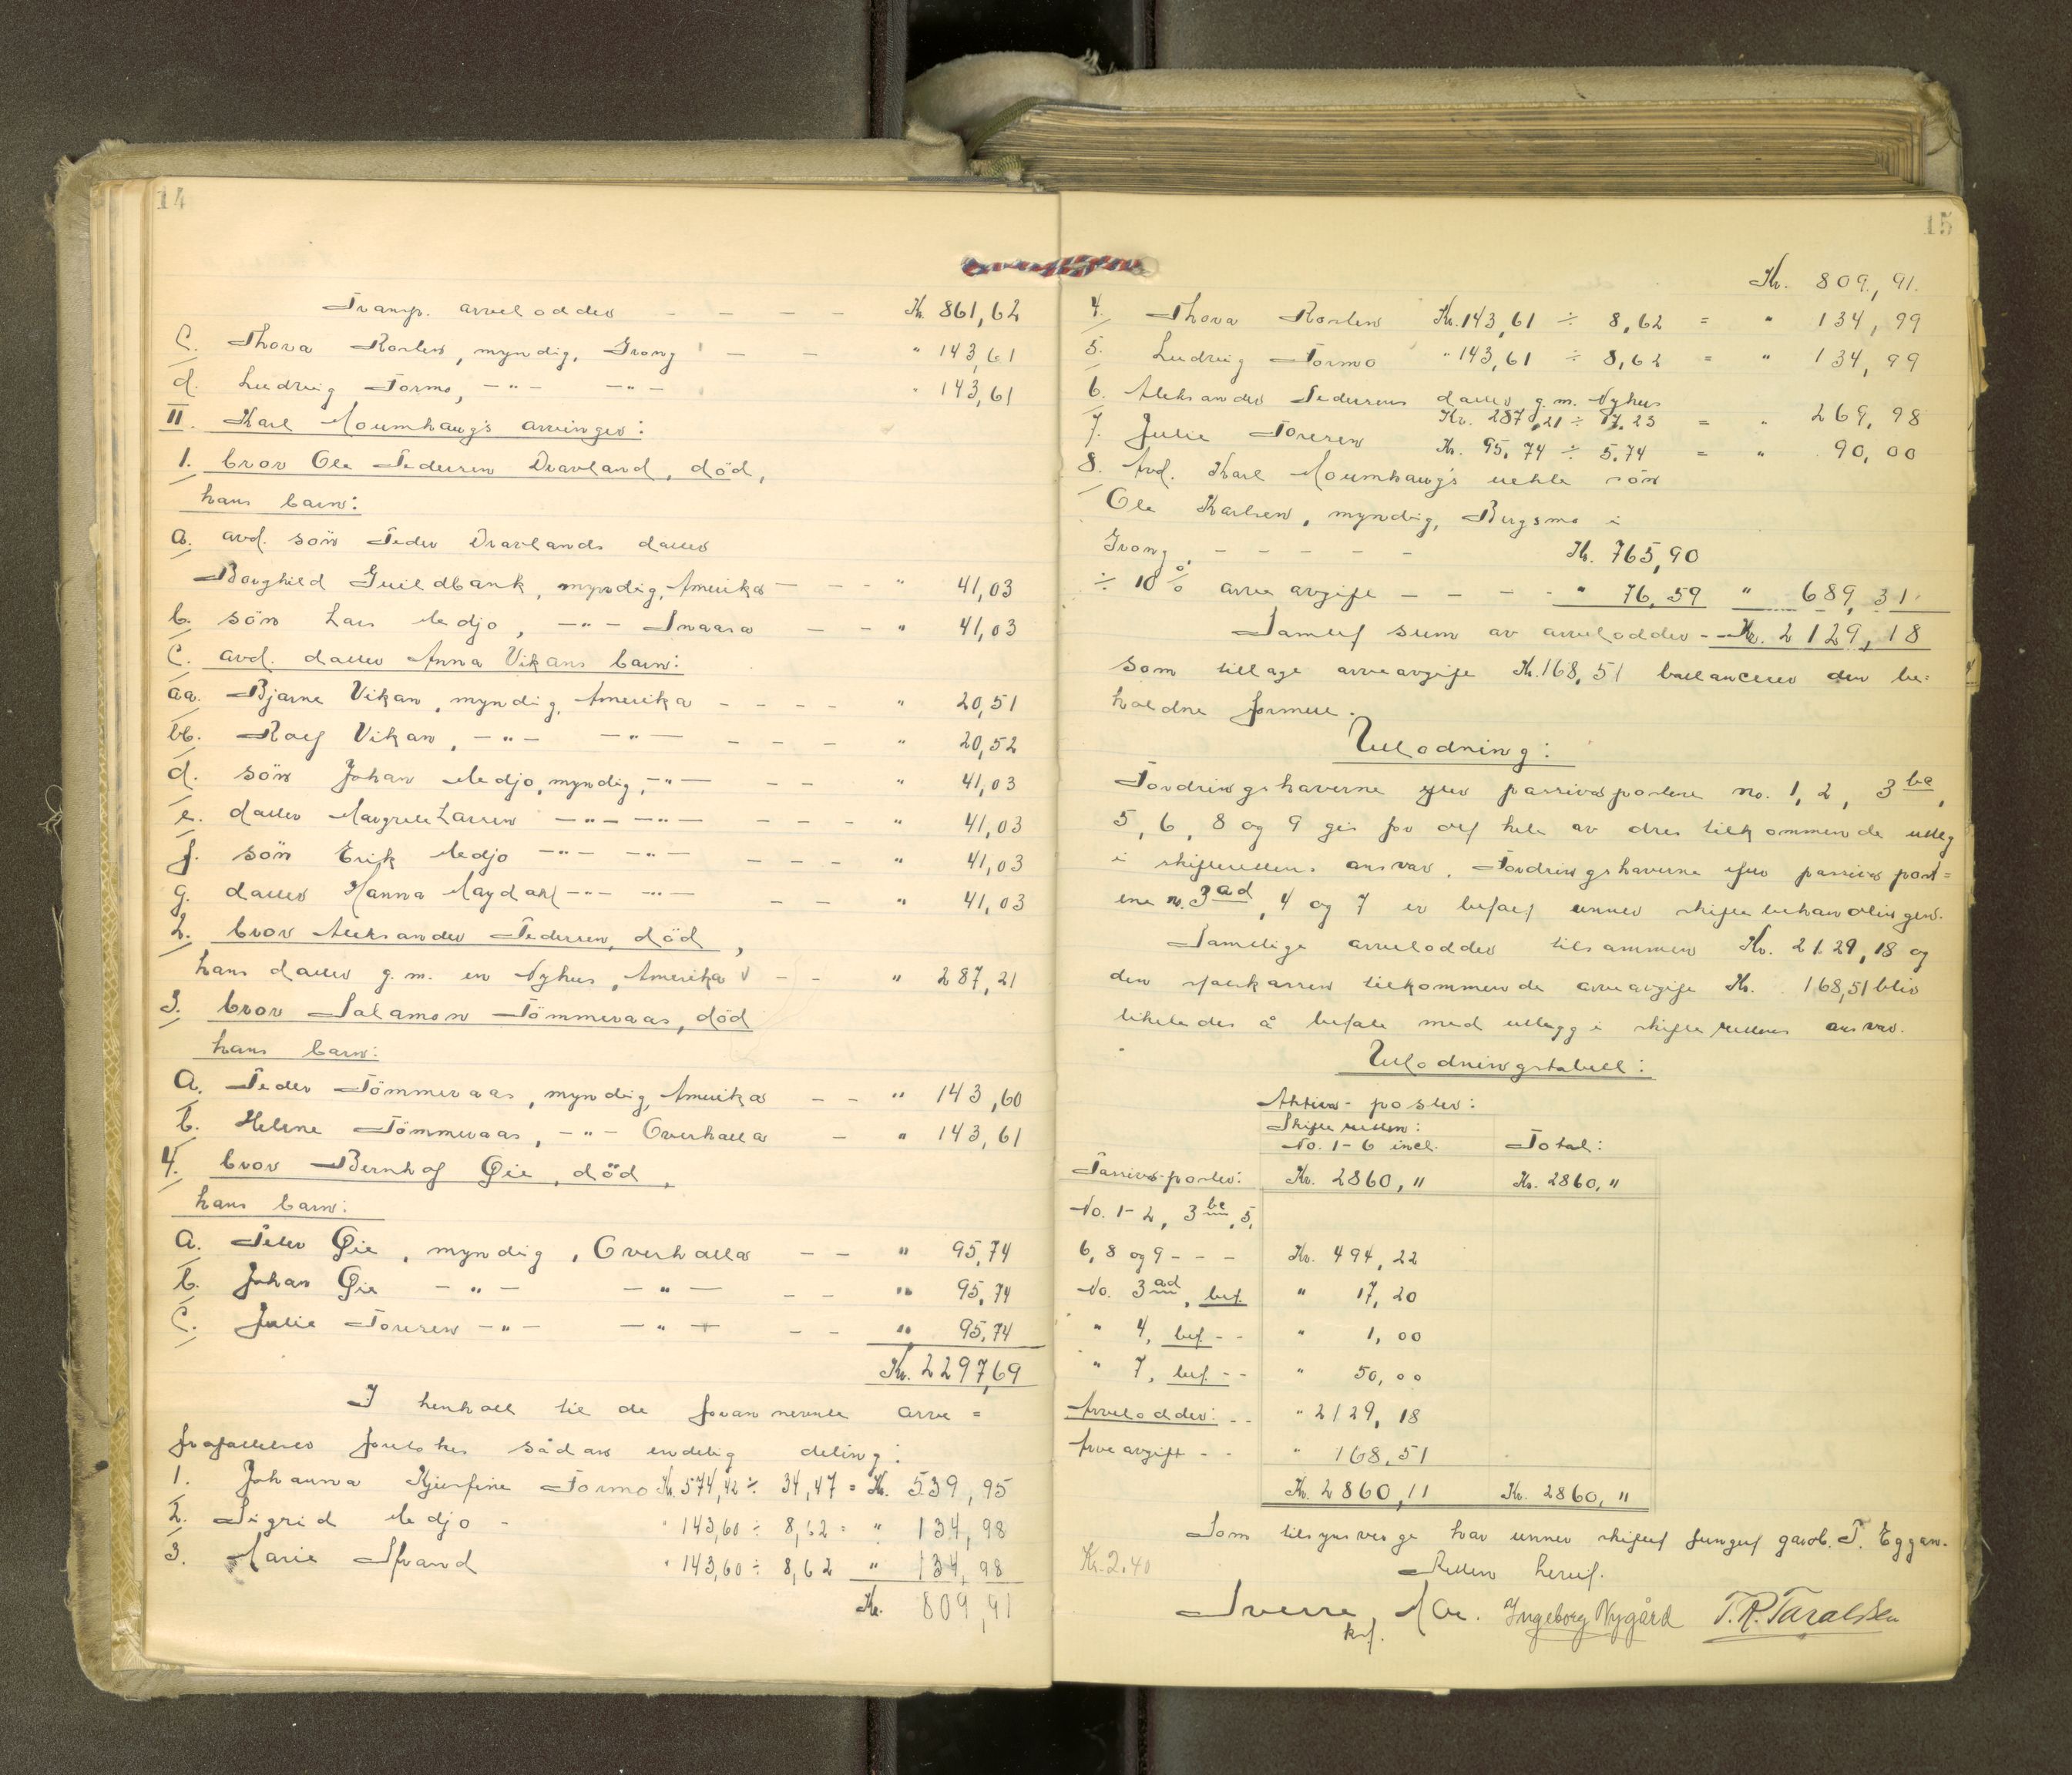 14
Transp. arvelodder - - - - Kr. 861,62
c. Thora Rosten, myndig, Grong - - " 143,61
d. Ludvig Tormo, -"- -"- " 143,61
II. Karl Moumhaug's arvinger:
1. bror Ole Pedersen Dravland, död,
hans barn:
a. avd. sön Peder Dravlands datter
Borghild Guildbank, myndig, Amerika - - - " 41,03
b. sön Lars Medjo, -"- Snaasa - - " 41,03
c. avd. datter Anna Vikans barn:
aa. Bjarne Vikan, myndig, Amerika - - - - " 20,51
bb. Rolf Vikan, -"- -"- - - - " 20,52
d. sön Johan Medjo, myndig, -"- - - " 41,03
e. datter Margrete Larsen -"- -"- - - - " 41,03
f. sön Erik Medjo -"- -"- - - - " 41,03
g. datter Hanna Maydahl -"- -"- - - " 41,03
2. bror Aleksander Pedersen, död,
hans datter g.m. en Nyhus, Amerika - - " 287,21
3. bror Salamon Tömmeraas, död
hans barn:
a. Peder Tömmeraas, myndig, Amerika - - " 143,60
b. Helene Tömmeraas, -"- Overhalla - " 143,61
4. bror Bernhof Øie, död,
hans barn:
a. Peter Øie, myndig, Overhalla - - " 95,74
b. Johan Øie -"- -"- - - " 95,74
c. Julie Toresen -"- -"- - - " 95,74
Kr. 2297,69
I henhold til de foran nevnte arve=
frafallelser foretokes sådan endelig deling:
1. Johanna Kjerfine Tormo Kr. 574,42 ÷ 34,47 = Kr. 539,95
2. Sigrid Medjo - " 143,60 ÷ 8,62 = " 134,98
3. Marie Strand " 143,60 ÷ 8,62 " 134,98
Kr. 809,91
15
Kr. 809,91.
4. Thora Rosten Kr. 143,61 ÷ 8,62 = " 134,99
5. Ludvig Tormo " 143,61 ÷ 8,62 = " 134,99
6. Aleksander Pedersens datter g.m. Nyhus
Kr. 287,21 ÷ 17,23 = " 269,98
7. Julie Toresen Kr. 95,74 ÷ 5,74 = " 90,00
8. Avd. Karl Moumhaug's uekte sön
Ole Karlsen, myndig, Bergsmo i
Grong, - - - - - Kr. 765,90
÷ 10 % arveavgift - - - - " 76,59 " 689,31
Samlet sum av arvelodder - - Kr. 2129,18
som tillagt arveavgift Kr. 168,51 ballancerer den be=
holdne formue.
Utlodning:
Fordringshaverne efter passivapostene no. 1, 2, 3 bc,
5, 6, 8 og 9 gis for det hele av dres tilkommende utleg
i skifterettens ansvar. Fordringshaverne efter passiva post=
ene no. 3 ad, 4 og 7 er betalt under skiftebehandlingen.
Samtlige arvelodder tilsammen Kr. 2129,18 og
den statskassen tilkommende arveavgift Kr. 168,51 blir
likeledes å betale med utlegg i skifterettens ansvar.
Utlodningstabell:
Aktiva-poster:
Skifteretten:
No. 1-6 incl. Total:
Passiva-poster: Kr. 2860," Kr. 2860,"
No. 1-2, 3 bc, 5,
6, 8 og 9 - - - Kr. 494,22
No. 3 ad, bet. " 17,20
" 4, bet. - - " 1,00
" 7, bet. - - " 50,00
Arvelodder: - - " 2129,18
Arveavgift - - " 168,51
Kr. 2860,11 Kr. 2860,"
Som tilsynsverge har under skiftet fungert gardb. P. Eggan.
Kr. 2.40
Retten hevet.
Sverre Moe. Ingeborg Nygård T. R. Taraldsen
kst.